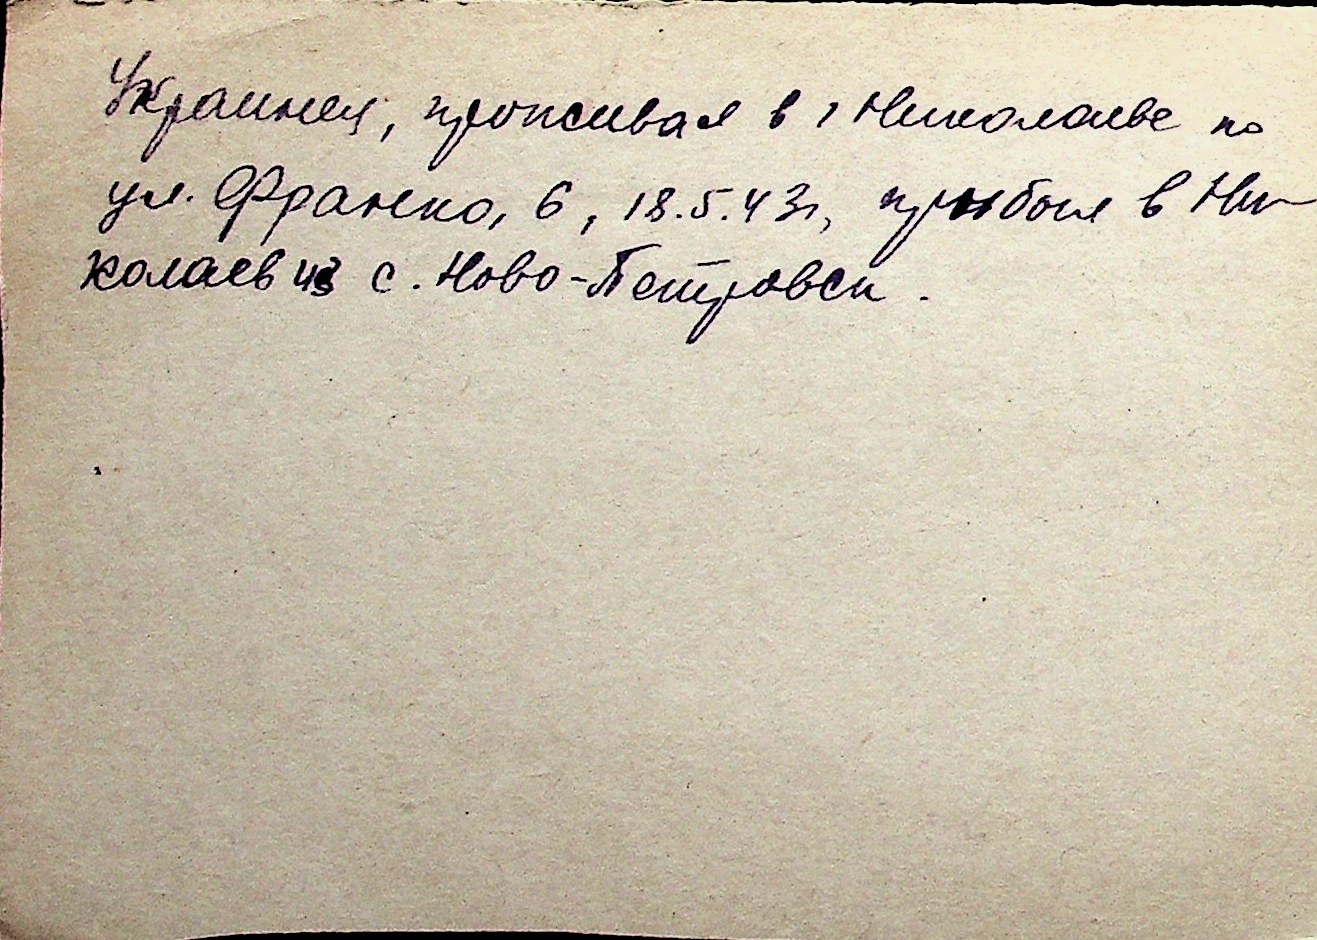 Украинец, проживал в г Николаеве по
ул. Франко, 6, 18.5.43г, прибыл в Ни-
колаев из с. Ново-Петровск.